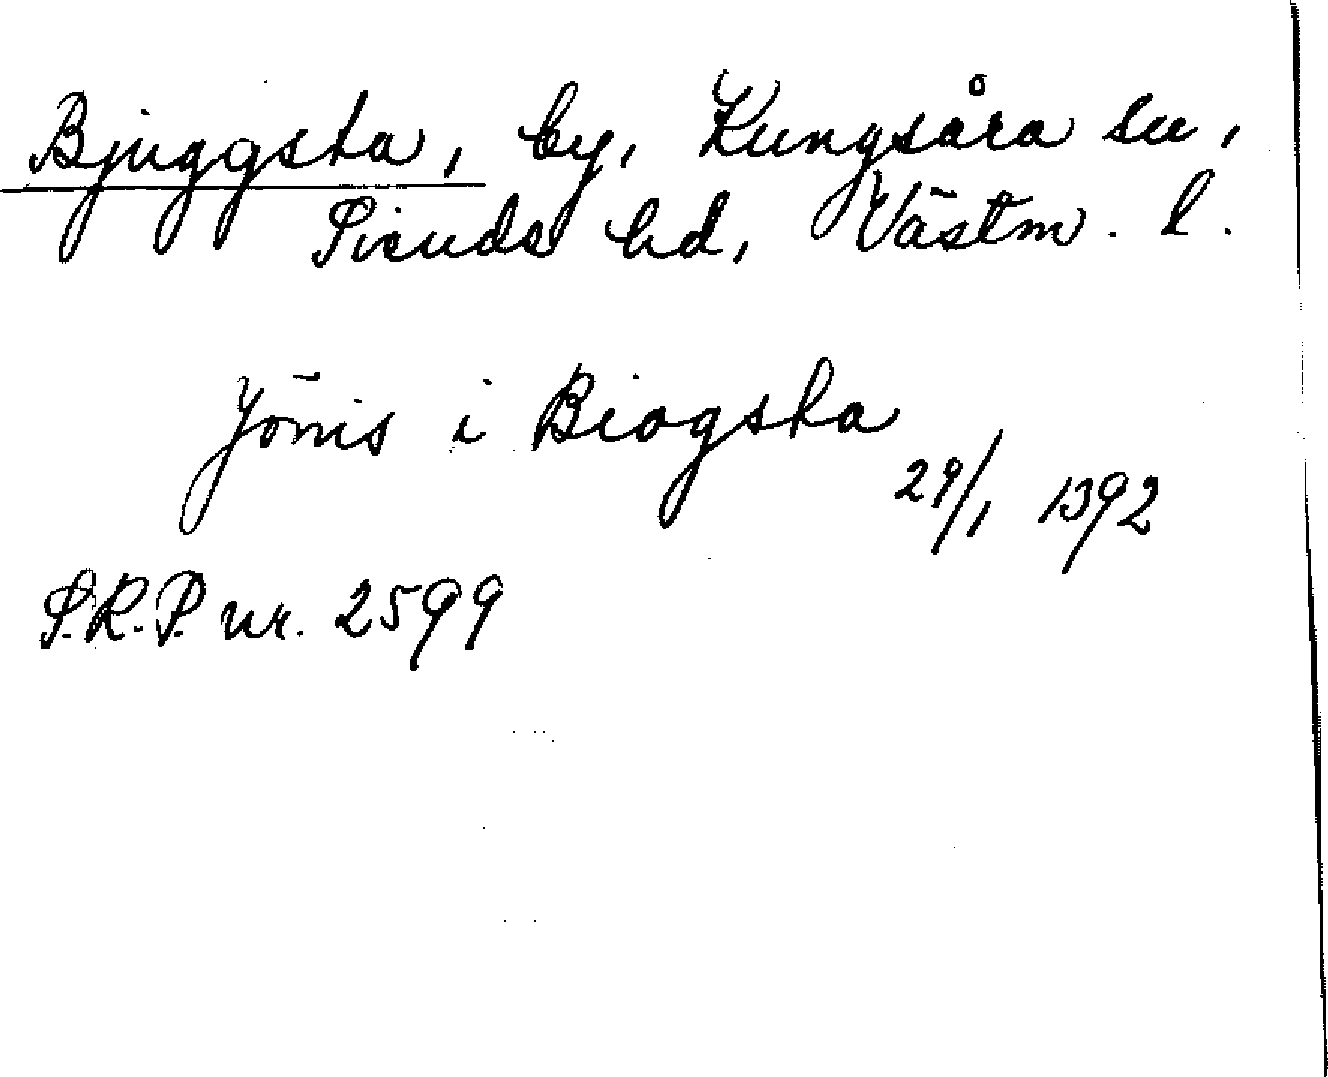 Bjuggsta, by, Kungsåra sn,
Siends hd, Västm. l.
Jönis i Biogsta
29/1 1392
S.R.P. nr. 2599